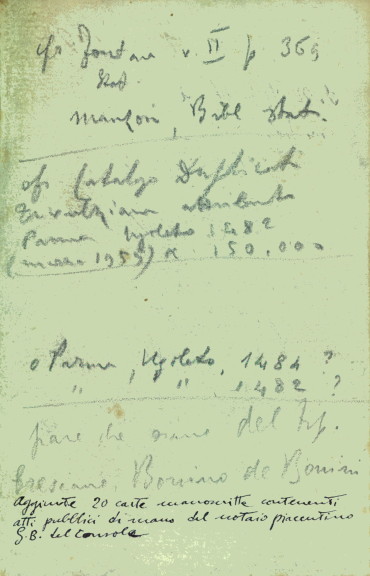 cfr Fontana v. II p 369
Stat.
Manzoni, Bibl. Stat.
cfr Catalogo Duplicati
Trivulziana
Parma Ugoleto 1482
(marzo 1955) 150.000
o Parma, Ugoleto, 1484 ?
" , " , 1482 ?
pare che siano del tip.
bresciano, Bonino de Bonini
Aggiunte 20 carte manoscritte contenenti
atti pubblici di mano del notaio piacentino
G.B. del Console